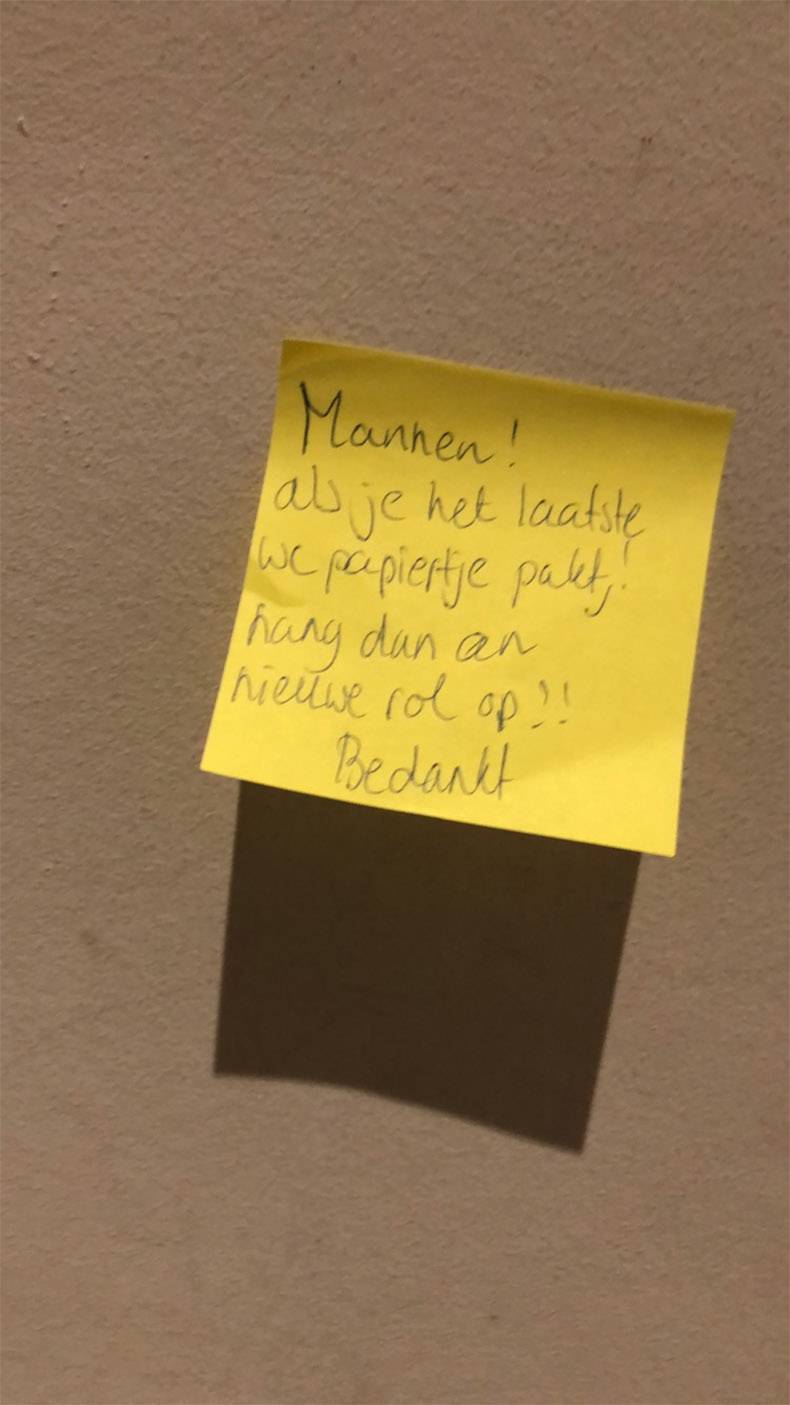 Mannen!
als je het laatste
wc papiertje pakt,!
hang dan een
nieuwe rol op!!
Bedankt